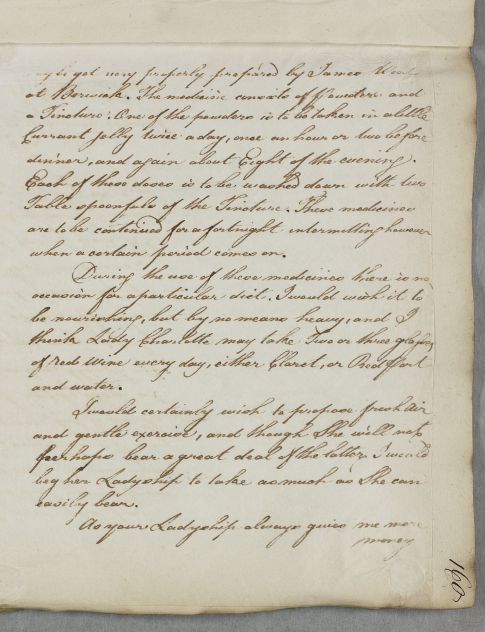 may be got very properly prepared by James
at Berwick. The medicine consists of Powders and
a Tincture. One of the powders is to be taken in a little
Currant Jelly twice a day, once an hour or two before
dinner, and again about Eight of the evening.
Each of these doses is to be washed down with two
Table spoonfuls of the Tincture. These medicines
are to be continued for a fortnight intermitting however
when a certain period comes on.
During the use of these medicines there is no
occasion for a particular diet. I would wish it to
be nourishing, but by no means heavy, and I
think Lady Charlotte may take Two or three glasses
of red Wine every day, either Claret, or Red Port
and water.
I would certainly wish to propose fresh air
and gentle exercise, and though She will not
perhaps bear a great deal of the latter I would
beg her Ladyship to take as much as She can
easily bear.
As your Ladyship always gives me more
money
160